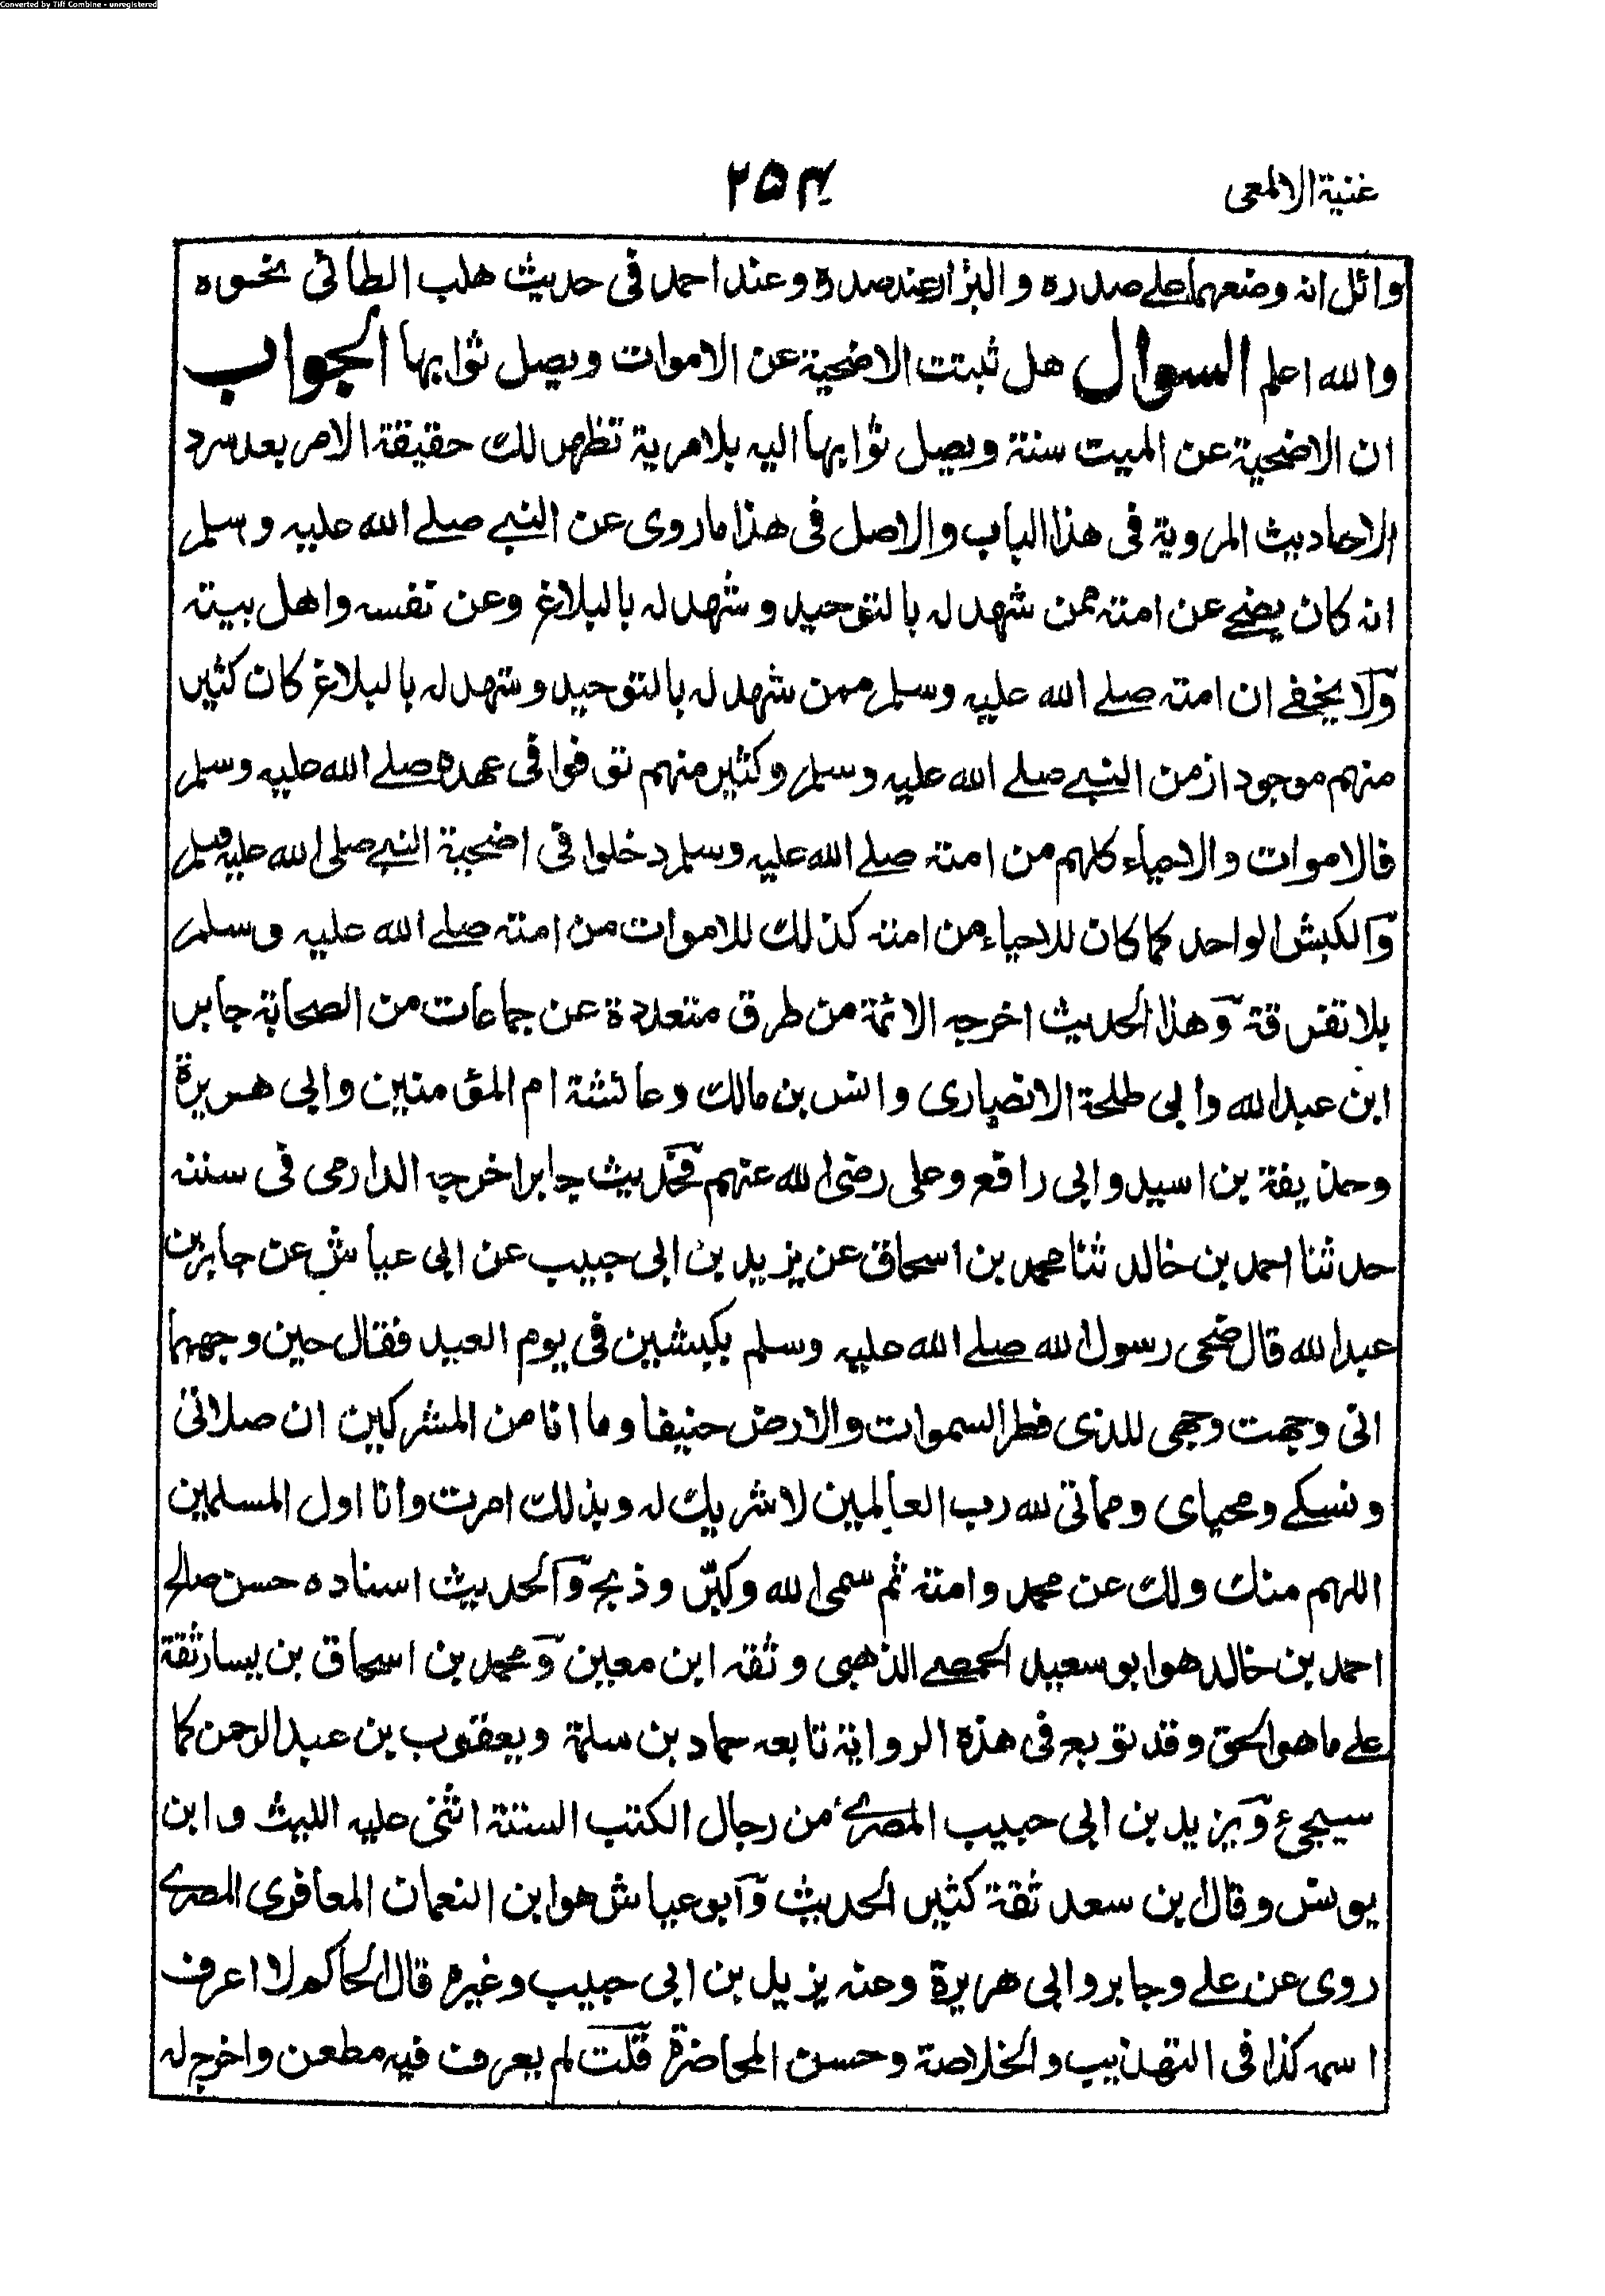 Converted by Tiff Combine - unregistered
غنية الالمعى
۲۵۴
وائل انه وضعهما على صدره والبزار عند صدره وعند احمد في حديث هلب الطائى نحوه
والله اعلم السوال هل ثبتت الاضحية عن الاموات ويصل ثوابها الجواب
ان الاضحية عن الميت سنة ويصل ثوابها اليه بلا مرية تظهر لك حقيقة الامر بعد سرد
الاحاديث المروية فى هذا الباب والاصل فى هذا ما روى عن النبي صلے الله عليه وسلم
انه كان يضحے عن امته ممن شهد له بالتوحيد وشهد له بالبلاغ وعن نفسه واهل بيته
ولا يخفے ان امته صلے الله عليه وسلم ممن شهد له بالتوحيد وشهد له بالبلاغ كان كثير
منهم موجودا زمن النبے صلے الله عليه وسلم وكثير منهم توفوا فى عهده صلے الله عليه وسلم
فالاموات والاحياء كلهم من امته صلے الله عليه وسلم دخلوا فى اضحية النبے صلى الله عليه وسلم
والكبش الواحد كما كان للاحياء من امته كذلك للاموات من امته صلے الله عليه وسلم
بلا تفرقة وهذا الحديث اخرجه الائمة من طرق متعددة عن جماعات من الصحابة جابر
ابن عبد الله وابى طلحة الانصارى وانس بن مالك وعائشة ام المؤمنين وابى هريرة
وحذيفة بن اسيد وابى رافع وعلى رضى الله عنهم فحديث جابر اخرجه الدارمى فى سننه
حدثنا احمد بن خالد ثنا محمد بن اسحاق عن يزيد بن ابى حبيب عن ابى عياش عن جابر بن
عبد الله قال ضحى رسول الله صلے الله عليه وسلم بكبشين فى يوم العيد فقال حين وجههما
انى وجهت وجهى للذى فطر السموات والارض حنيفا وما انا من المشركين ان صلاتى
ونسكے ومحياى ومماتى لله رب العالمين لا شريك له وبذلك امرت وانا اول المسلمين
اللهم منك ولك عن محمد وامته ثم سمى الله وكبّر وذبح والحديث اسناده حسن صالح
احمد بن خالد هو ابو سعيد الحمصے الذهبى وثقه ابن معين ومحمد بن اسحاق بن يسار ثقة
علے ما هو الحق وقد توبع فى هذه الرواية تابعه حماد بن سلمة ويعقوب بن عبد الرحمن كما
سيجئ ويزيد بن ابى حبيب المصرے من رجال الكتب الستة اثنى عليه الليث وابن
يونس وقال بن سعد ثقة كثير الحديث وابو عياش هو ابن النعمان المعافرى المصرے
روى عن علے وجابر وابى هريرة وعنه يزيد بن ابى حبيب وغيره قال الحاكم لا اعرف
اسمه كذا فى التهذيب والخلاصة وحسن المحاضرة قلت لم يعرف فيه مطعن واخرج له